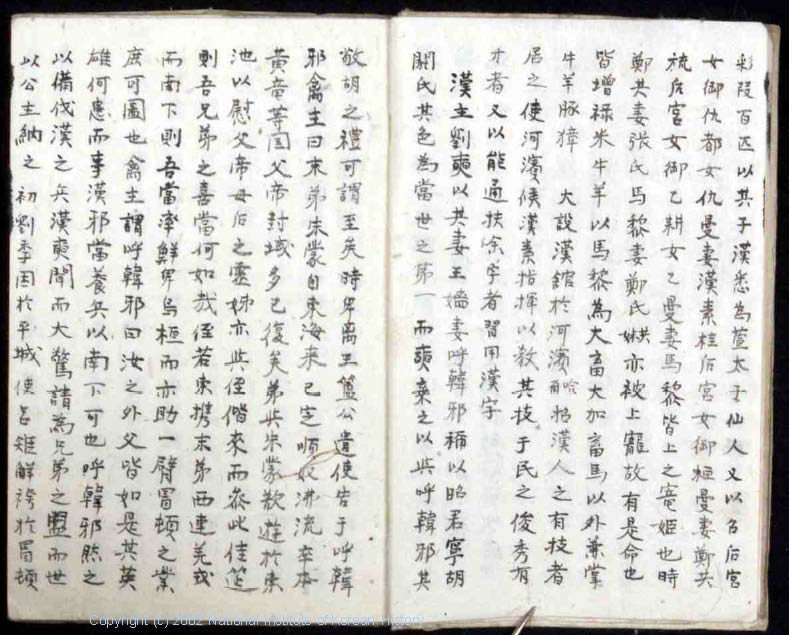 彩段百匹以其子漢悉為萱太子仙人又以名后宮
女御仇都女仇曼妻漢素桂后宮女御桓曼妻鄭共
旒后宮女御乙耕女乙曼妻馬黎皆上之寵姬也時
鄭共妻張氏馬黎妻鄭氏娂亦被上寵故有是命也
皆增祿米牛羊以馬黎為大畜大加畜馬以外兼掌
牛羊豚獐 大設漢舘於河濱 招漢人之有技者
居之使河濱侯漢素指揮以敎其技于民之俊秀有
才者又以能通扶余字者習用漢字
漢主劉奭以其妻王嬙妻呼韓邪稱以昭君寧胡
閼氏其色為當世之第一而奭棄之以與呼韓邪其
敬胡之禮可謂至矣時卑离王簠公遣使告于呼韓
邪禽主曰末弟朱蒙自東海來已定順奴沸流卒本
黄竜等国父帝封域多已復矣弟與朱蒙欲遊於東
池以慰父帝母后之霊姊亦與侄偕來而参此佳筵
則吾兄弟之喜當何如哉侄若東携末弟西連羌戎
而南下則吾當率鮮卑烏桓而亦助一臂冒頓之業
庶可圖也禽主謂呼韓邪曰汝之外父皆如是其英
雄何患而事漢邪當養兵以南下可也呼韓邪然之
以備伐漢之兵漢奭聞而大驚請為兄弟之盟而世
以公主納之 初劉季困於平城使呂雉解袴於冒頓
Copyright (c) 2002 National Institute of Korean History